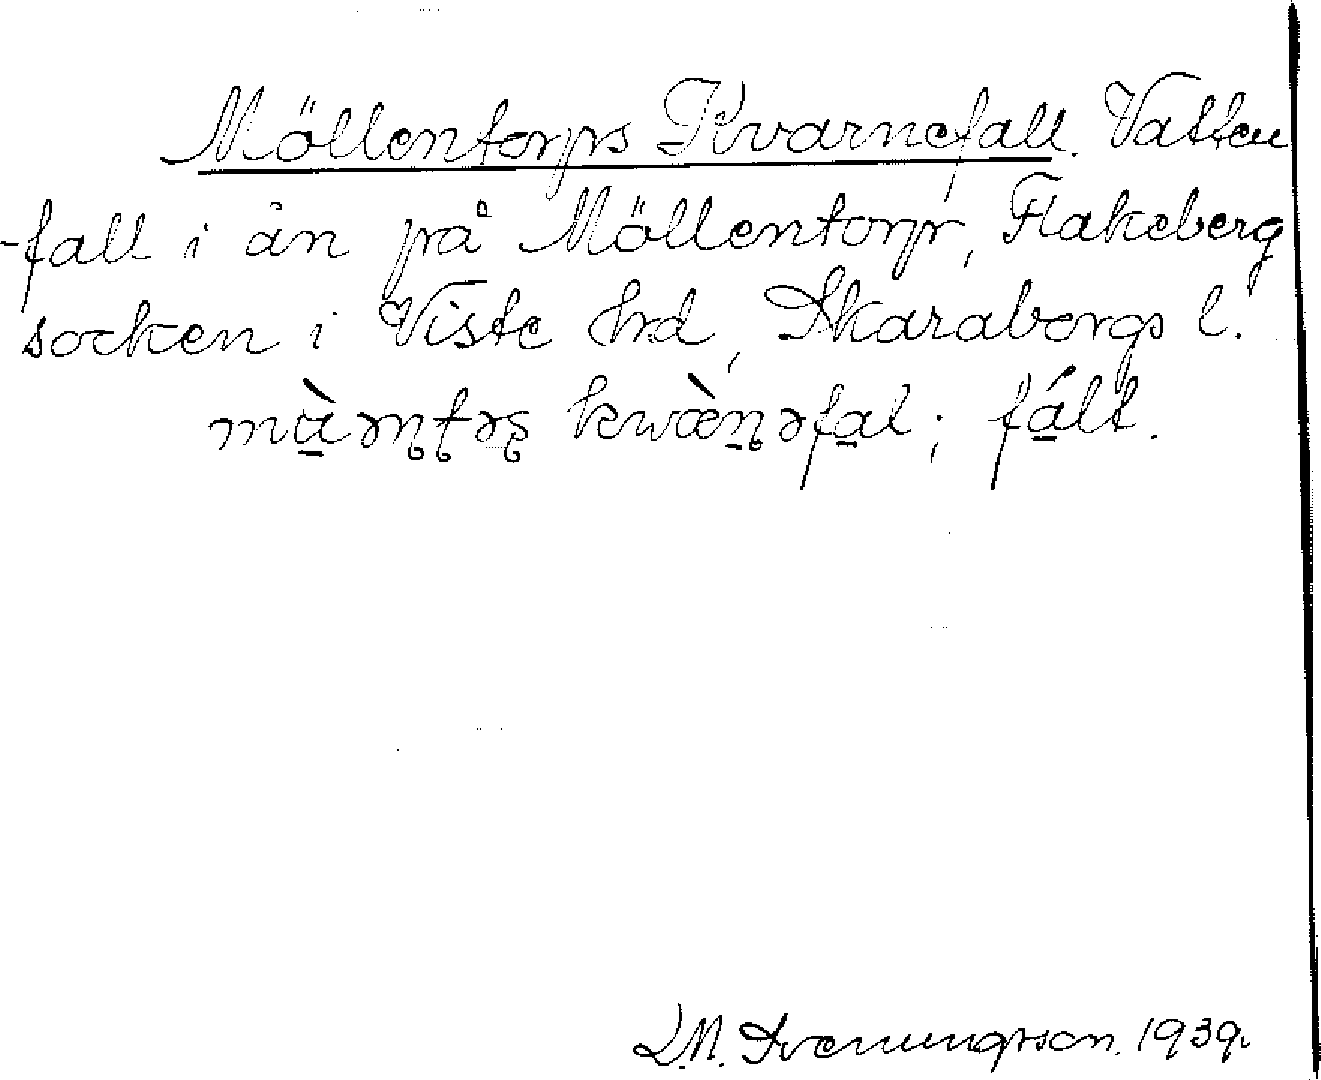 Möllentorps Kvarnefall. Vatten
-fall i ån på Möllentorp, Flakeberg
socken i Viste hd, Skaraborgs l.
kwæ̀n̥əfal; fált.
S.M. Svenungsson. 1939.